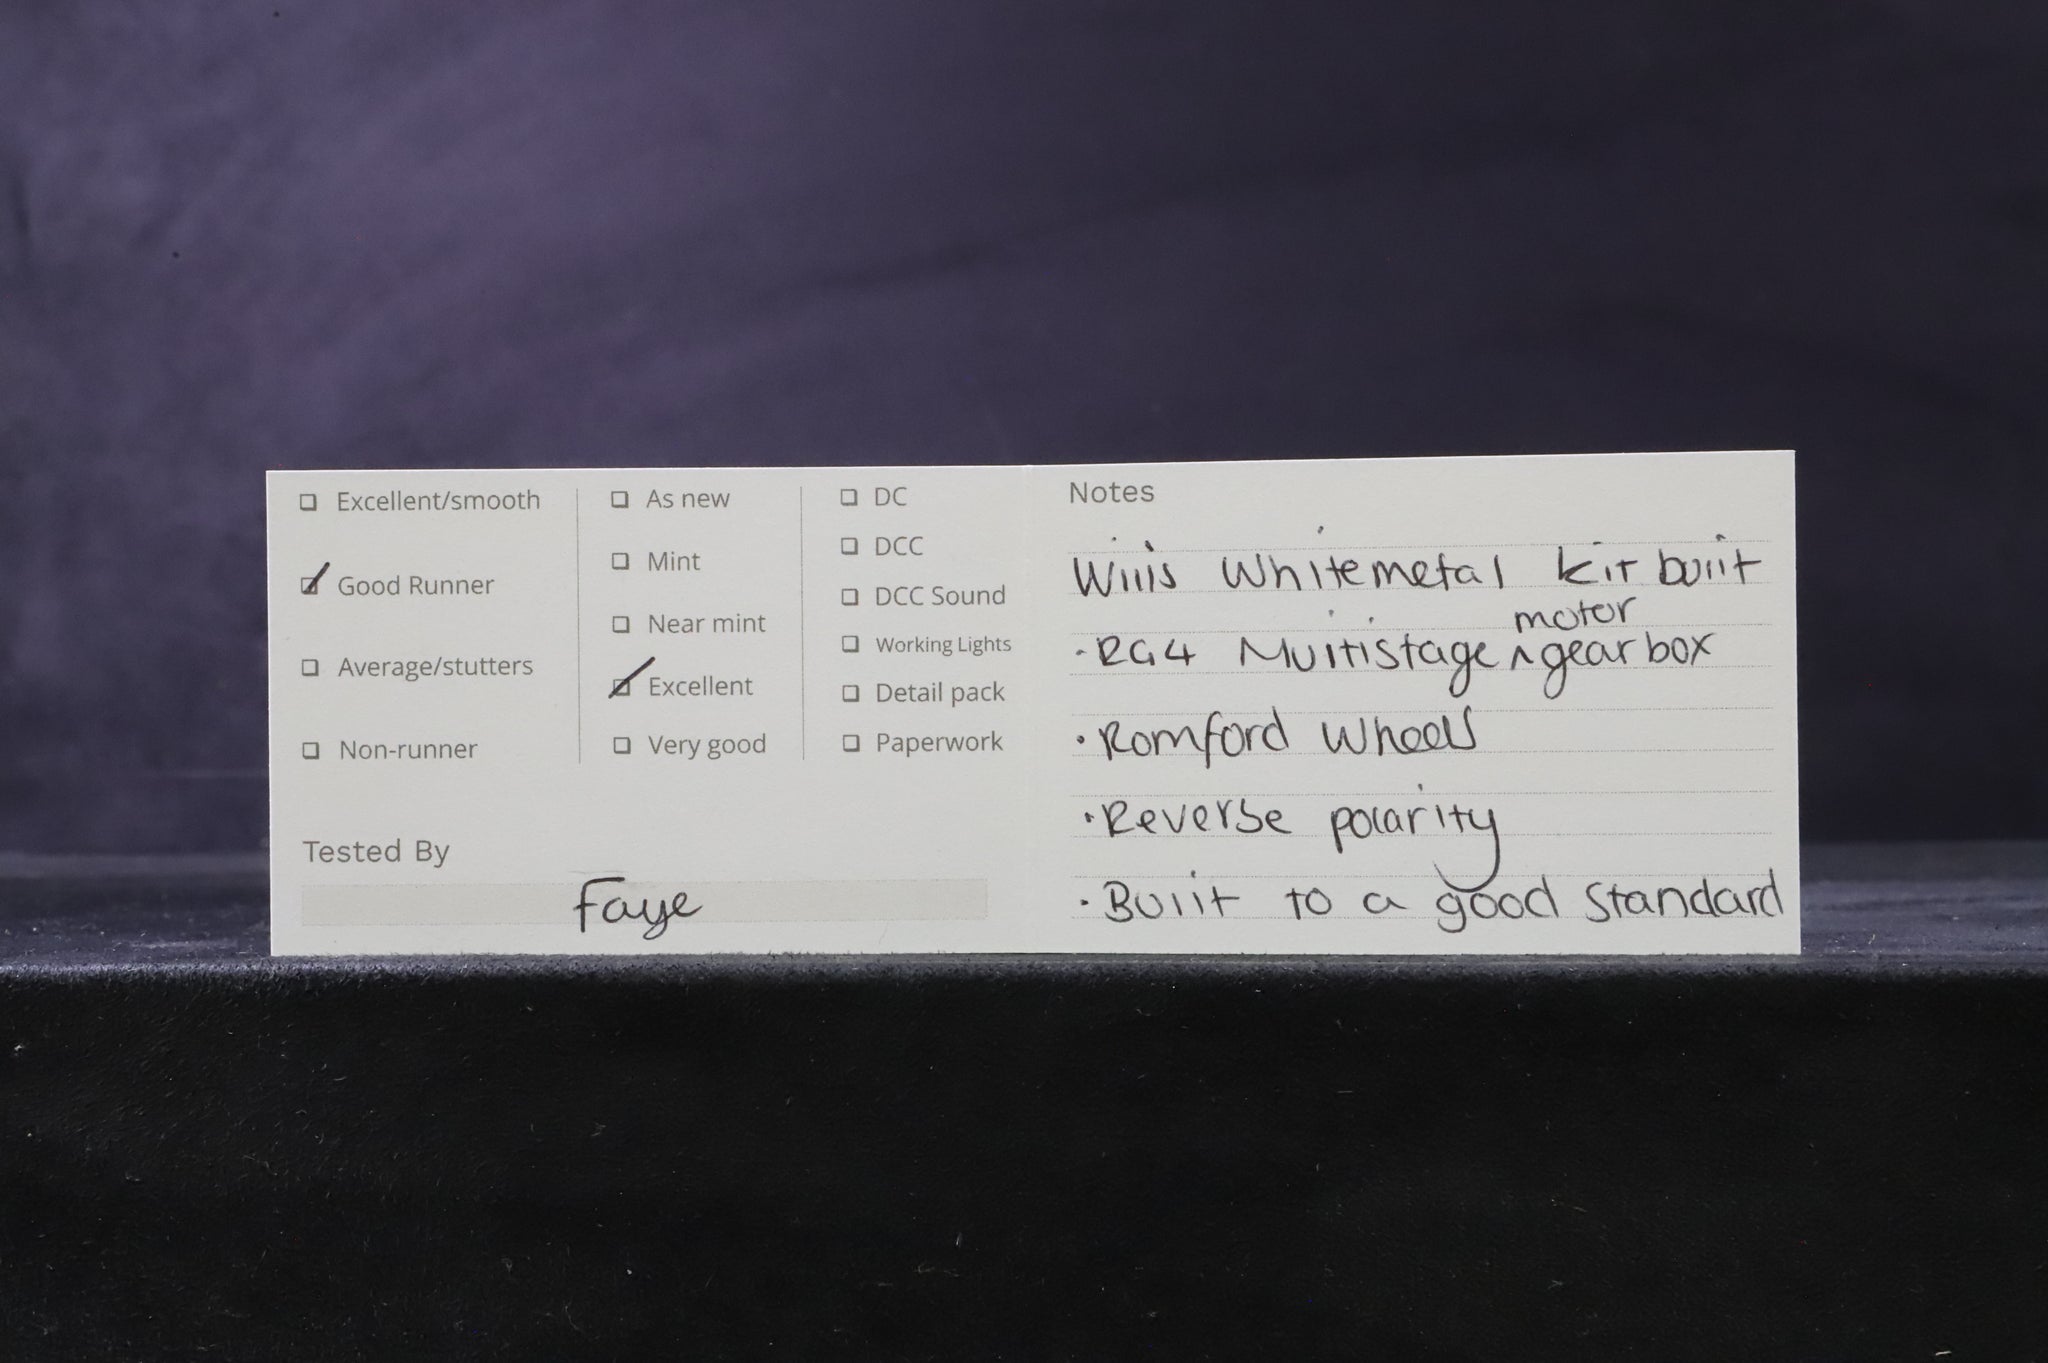 Excellent/smooth
Good Runner
Average/stutters
Non-runner
As new
Mint
Near mint
Excellent
Very good
DC
DCC
DCC Sound
Working Lights
Detail pack
Paperwork
Tested By
Faye
Notes
Wills Whitemetal kit built
motor
·RG4 Multistage ^ gearbox
·Romford Wheels
·Reverse polarity
·Built to a good standard